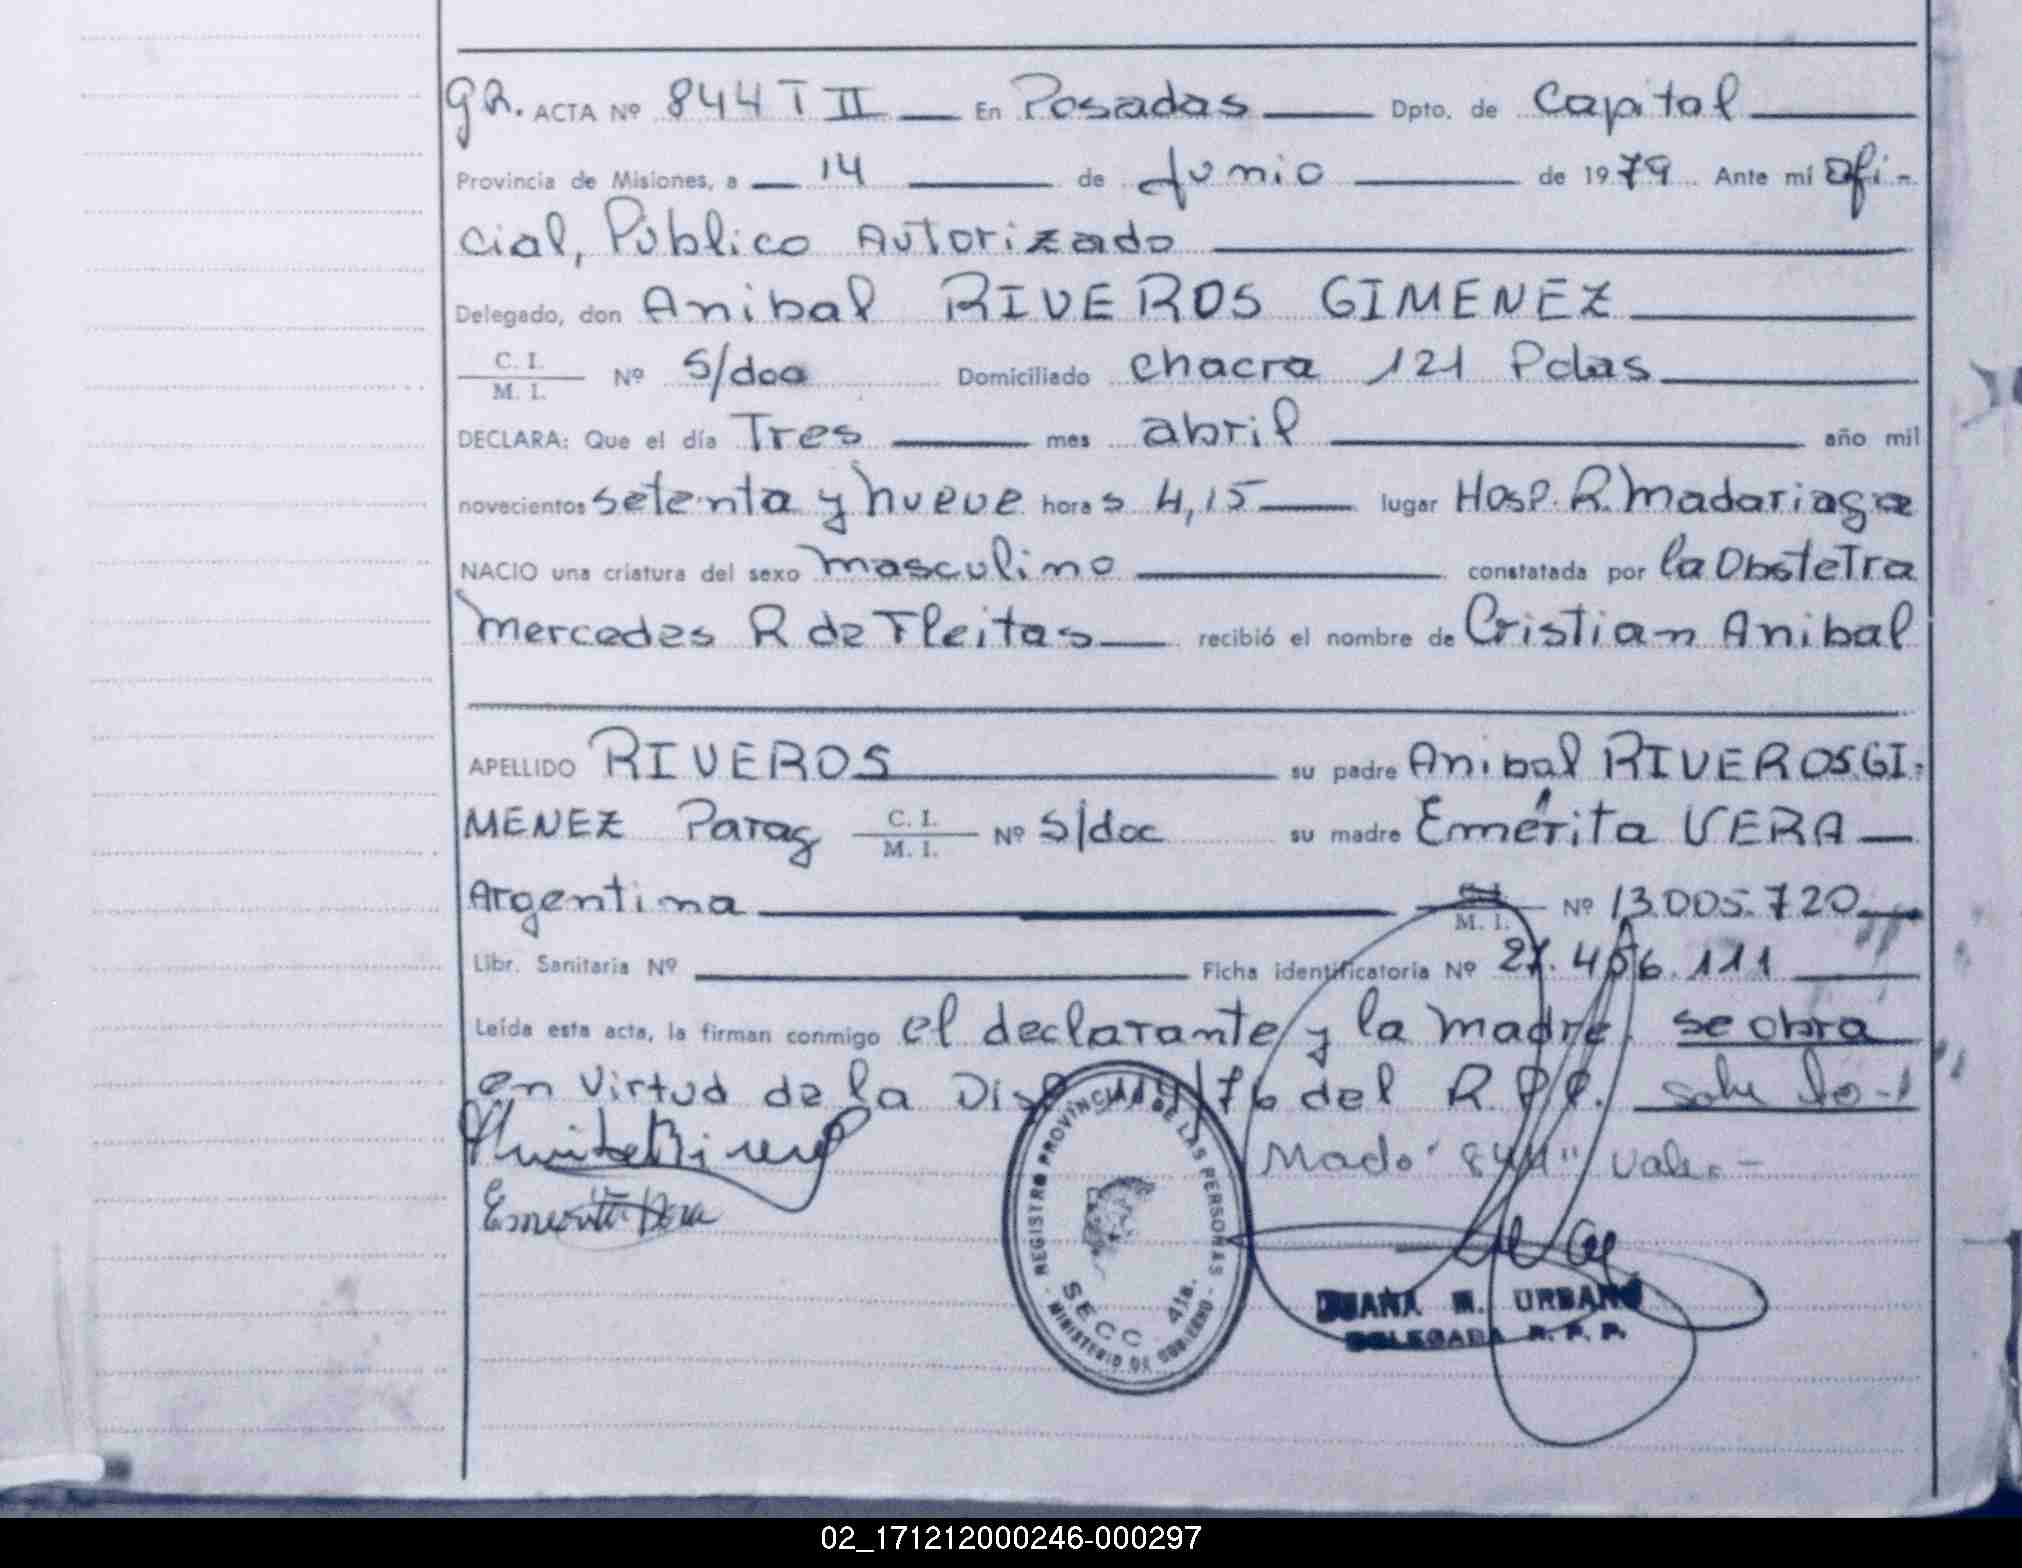 gR. ACTA Nº 844 T II En Posadas Dpto. de Capital
Provincia de Misiones, a 14 de Junio de 1979 Ante mí ofi-
cial, Público Autorizado
Delegado, don Anibal RIVEROS GIMENEZ
C. I. / M. I. Nº S/doc Domiciliado chacra 121 Pdas
DECLARA: Que el día Tres mes abril año mil
novecientos setenta y nueve hora s 4,15 lugar Hosp. R. Madariaga
NACIO una criatura del sexo masculino constatada por la Obstetra
Mercedes R de Fleitas recibió el nombre de Cristian Anibal
APELLIDO RIVEROS su padre Anibal RIVEROS GI-
MENEZ Parag C. I. / M. I. Nº S/doc su madre Emérita VERA
Argentina M. I. Nº 13.005.720
Libr. Sanitaria Nº Ficha identificatoria Nº 27.456.111
Leída esta acta, la firman conmigo el declarante y la madre. se obra
en virtud de la Disp 114/76 del R.P.P.
mado "844" vale.-
Emerita Vera
REGISTRO PROVINCIAL DE LAS PERSONAS
SECC. 4ta.
- MINISTERIO DE GOBIERNO -
JUANA M. URBANO
DELEGADA R. P. P.
02_171212000246-000297